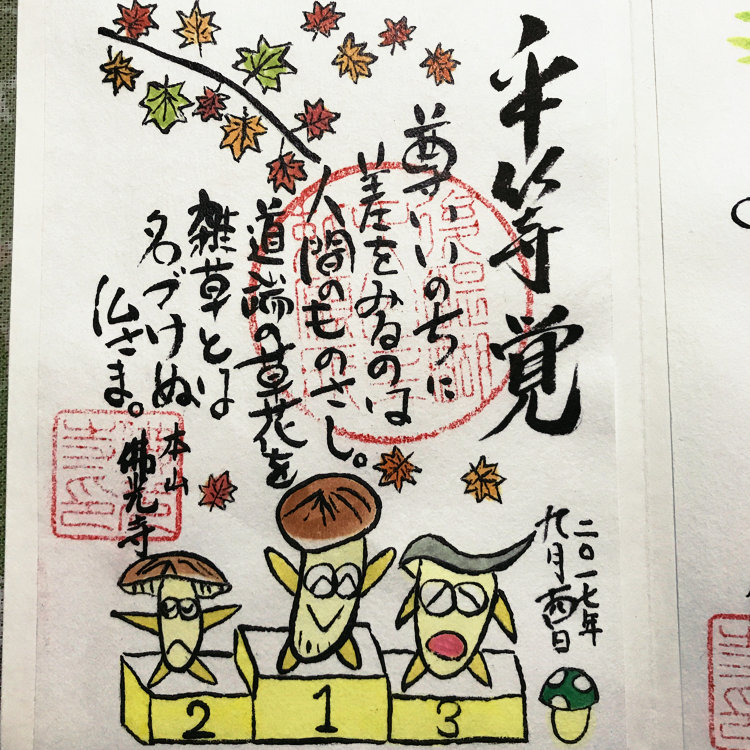 平等覚
尊いいのちに
差をみるのは
人間のものさし。
道端の草花を
雑草とは
名づけぬ
仏さま。
本山
佛光寺
二〇一七年
九月 日
2 1 3